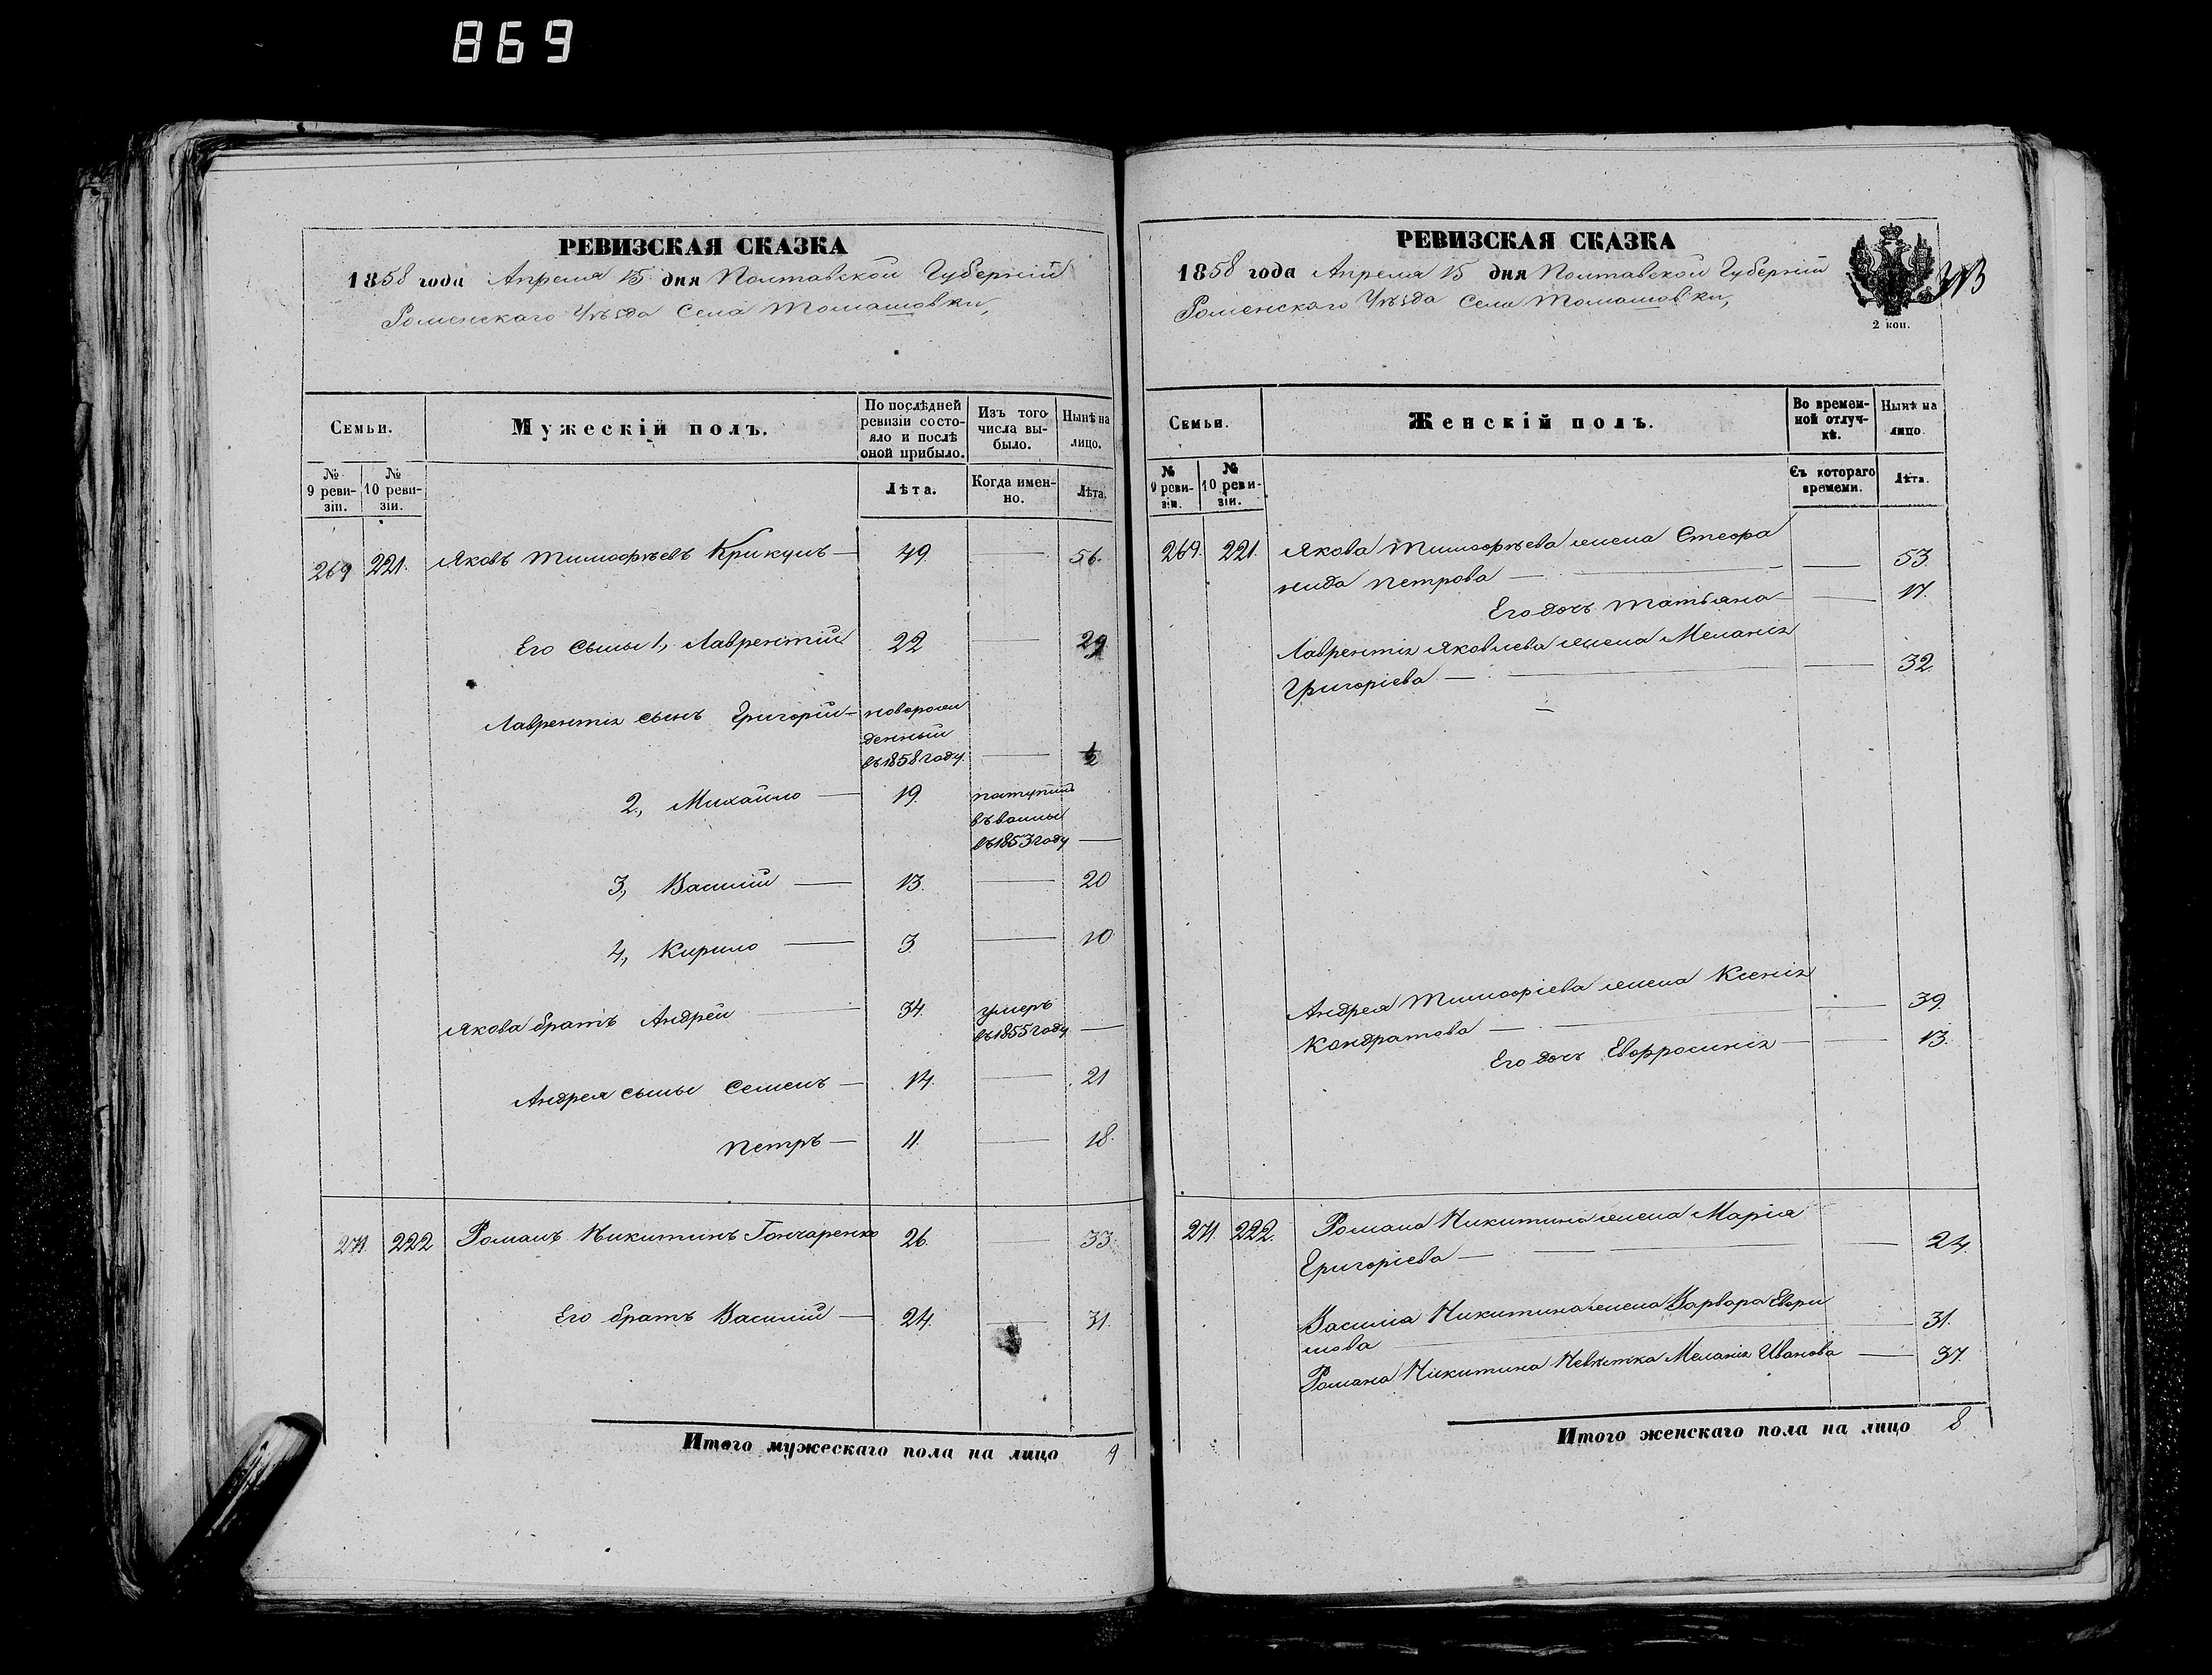 869
РЕВИЗСКАЯ СКАЗКА
1858 года Апреля 15 дня Полтавской Губерніи
Роменского Уѣзда Села Томашовки,
Семьи.
Мужескій полъ.
По послѣдней ревизіи состояло и послѣ оной прибыло.
Изъ того числа выбыло.
Нынѣ на лицо.
№ 9 ревизіи.
№ 10 ревизіи.
Лѣта.
Когда именно.
Лѣта.
269 221. Яковъ Тимофѣевъ Крикунъ — 49. — 56.
Его сыны 1, Лаврентій 22 — 29
Лаврентія сынъ Григорій — новорож
денный
въ 1858 году. — ½
2, Михайло — 19. поступилъ
въ воины
въ 1853 году —
3, Василій — 13. — 20
4, Кирило — 3 — 10
Якова братъ Андрей — 34. умеръ
въ 1855 году —
Андрея сыны Семенъ — 14. — 21
Петръ — 11. — 18.
271. 222 Романъ Никитинъ Гончаренко 26. — 33.
Его братъ Василій — 24. — 31.
Итого мужескаго пола на лицо 9
РЕВИЗСКАЯ СКАЗКА
1858 года Апреля 15 дня Полтавской Губерніи
Роменского Уѣзда Села Томашовки,
2 коп.
Семьи.
Женскій полъ.
Во временной отлучкѣ.
Нынѣ на лицо.
№ 9 ревизіи.
№ 10 ревизіи.
Съ котораго времени.
Лѣта.
269. 221. Якова Тимофѣева жена Стефа
нида Петрова — — 53.
Его дочь Татьяна — 17.
Лаврентія Яковлева жена Меланія
Григоріева — — 32.
Андрея Тимофіева жена Ксенія
Кондратова — — 39.
Его дочь Евфросинія — 13.
271. 222. Романа Никитина жена Марія
Григоріева — — 24.
Василія Никитина жена Варвара Ефи
мова — 31.
Романа Никитина Невѣстка Меланія Иванова — 37.
Итого женскаго пола на лицо 8